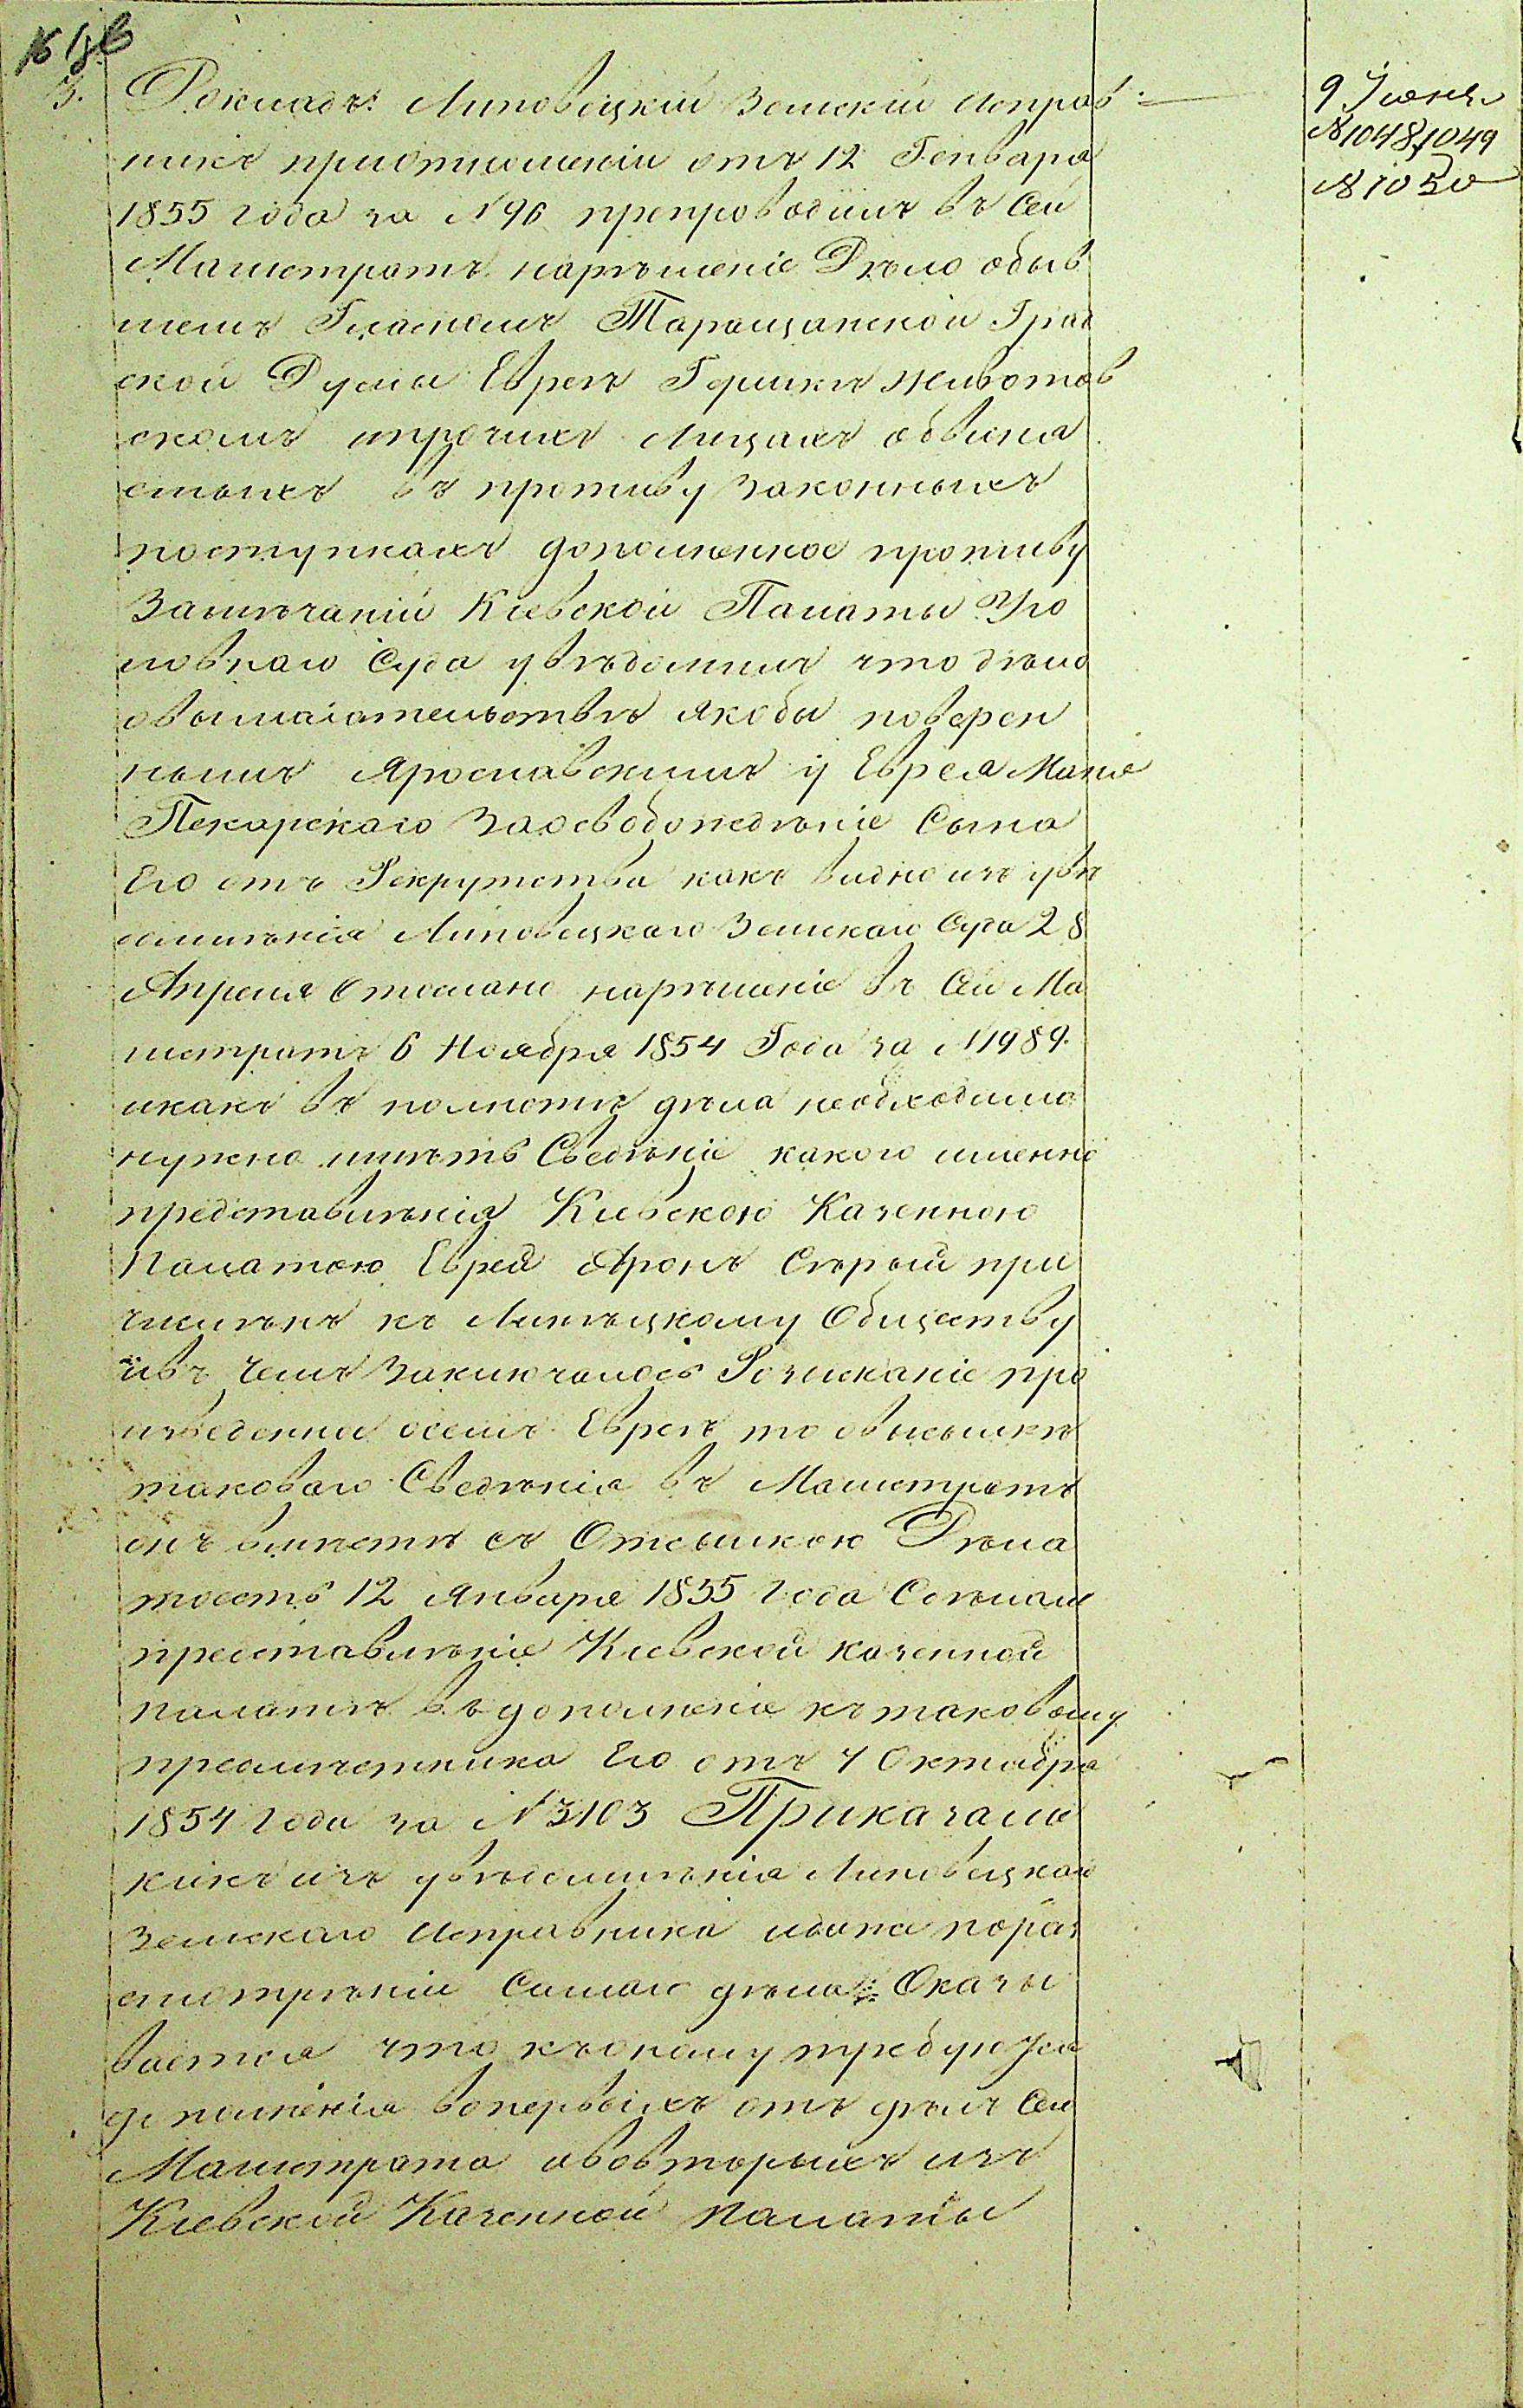 3. Докладъ: Липовецкій Земскій Исправ
никъ приотношеніи отъ 12 Генваря
1855 года за №96 препроводилъ въ Сей
Магистратъ нарѣшеніе Дѣло обыв
шемъ Гласномъ Таращанской Град
ской Думы Евреѣ Гершкѣ Животов
скомъ ипрочихъ Лицахъ обвиня
емыхъ въ противу Законныхъ
поступкахъ дополненное противу
Замѣчаній Кіевской Палаты Уго
ловнаго Суда увѣдомилъ что дѣло
овымагательствѣ якобы поверен
нымъ Ярославскимъ у Еврея Маня
Пекарскаго Заосвобожедѣніе Сына
Его отъ Рекрутства какъ видно изъ увѣ
домленія Липовецкаго Земскаго Суда 28
Апреля Отослано нарѣшеніе въ Сей Ма
гистратъ 6 Ноября 1854 Года за №1989.
икакъ въ полнотѣ дѣла необходимо
нужно имѣть Сведѣніе какого именно
представилѣнія Кіевскою Казенною
Палатою Еврей Аронъ Сѣрый при
численъ къ Липецкому Обществу
ивъ чемъ Заключалось Розисканіе про
изведенное осемъ Евреѣ то овысылкѣ
таковаго Сведѣнія въ Магистратъ
онъ вмѣстѣ съ Отсылкою Дѣла
тоесть 12 Января 1855 года Сдѣлалъ
представилѣніе Кіевской казенной
палатѣ въ дополненіе къ таковому
предмѣстника Его отъ 4 Октября
1854 года за №3103 Приказали
какъ изъ увѣдомлѣнія Липовецкаго
Земскаго Исправника порас
смотрѣніи Самаго дѣла Оказы
вается что къоному требуются
дополненія вопервыхъ отъ дѣлъ Сего
Магистрата авовторыхъ изъ
Кіевской Казенной палаты
9 Іюня
№1048, 1049
№1050